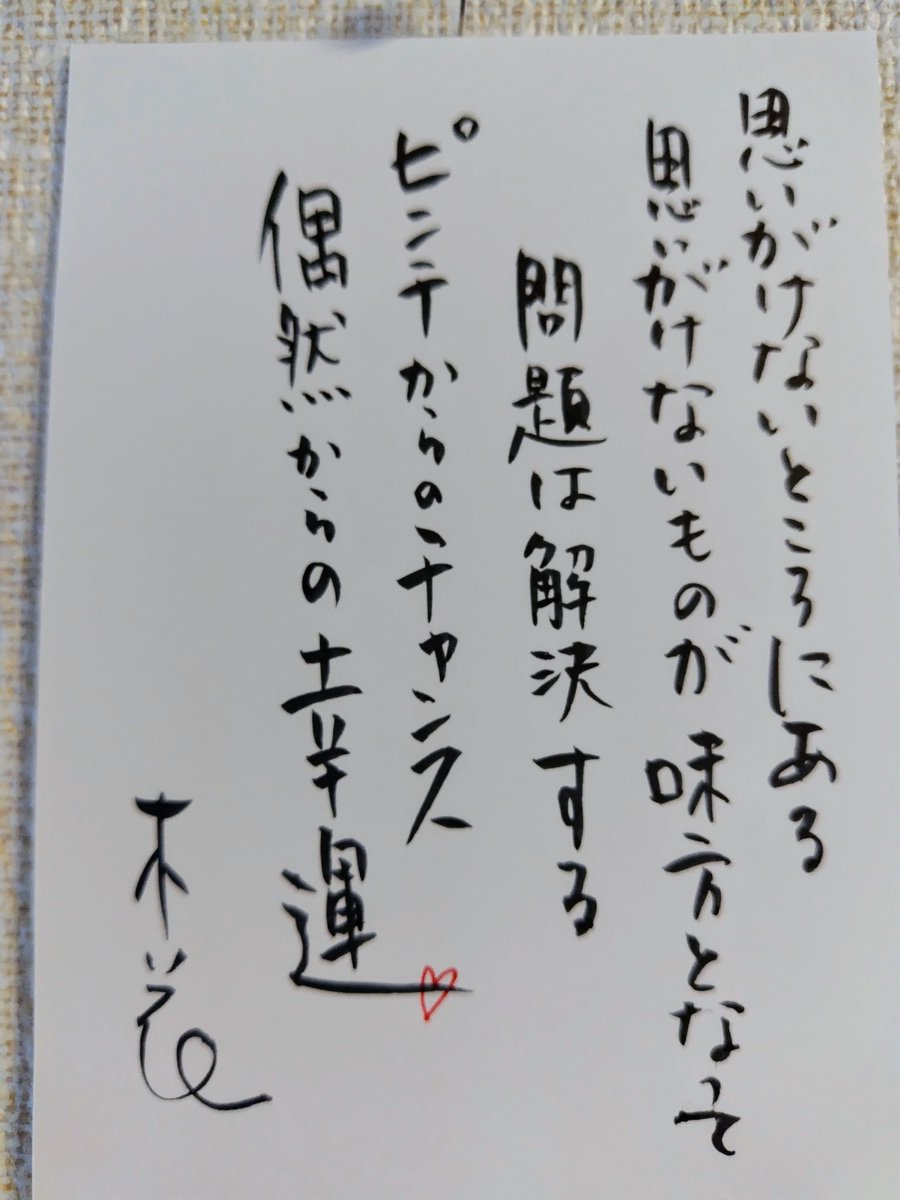 思いがけないところにある
思いがけないものが味方となって
問題は解決する
ピンチからのチャンス
偶然からの幸運
木花